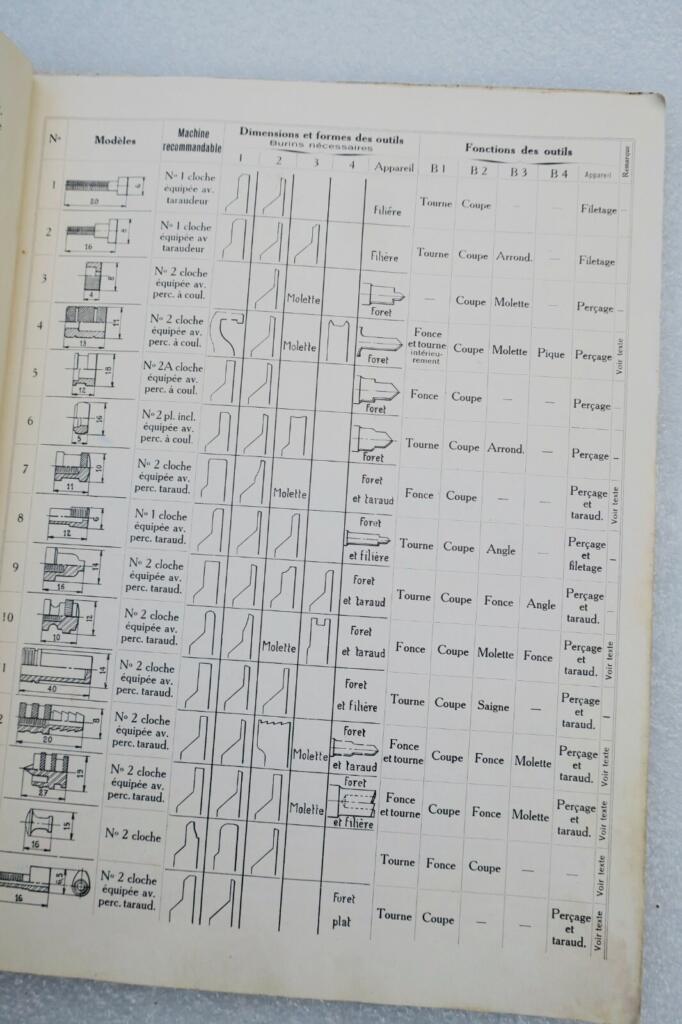 Nº Modèles Machine recommandable Dimensions et formes des outils Fonctions des outils Remarque
Burins nécessaires
1 2 3 4 Appareil B 1 B 2 B 3 B 4 Appareil
1 20 6 Nº 1 cloche équipée av. taraudeur Filière Tourne Coupe — — Filetage –
2 16 8 Nº 1 cloche équipée av taraudeur Filière Tourne Coupe Arrond. — Filetage
3 4 8 Nº 2 cloche équipée av. perc. à coul. Molette foret — Coupe Molette — Perçage –
4 13 11 Nº 2 cloche équipée av. perc. à coul. Molette foret Fonce et tourne intérieu-rement Coupe Molette Pique Perçage Voir texte
5 12 18 Nº 2A cloche équipée av. perc. à coul. foret Fonce Coupe — — Perçage
6 5 16 Nº 2 pl. incl. équipée av. perc. à coul. foret Tourne Coupe Arrond. — Perçage –
7 11 10 Nº 2 cloche équipée av. perc. taraud. Molette foret et taraud Fonce Coupe — — Perçage et taraud. Voir texte
8 12 6 Nº 1 cloche équipée av. perc. taraud. foret et filière Tourne Coupe Angle — Perçage et filetage –
9 16 14 Nº 2 cloche équipée av. perc. taraud. foret et taraud Tourne Coupe Fonce Angle Perçage et taraud. –
10 10 12 Nº 2 cloche équipée av. perc. taraud. Molette foret et taraud Fonce Coupe Molette Fonce Perçage et taraud. Voir texte
1 40 14 Nº 2 cloche équipée av. perc. taraud. foret et filière Tourne Coupe Saigne — Perçage et taraud. –
2 20 8 Nº 2 cloche équipée av. perc. taraud. Molette foret et taraud Fonce et tourne Coupe Fonce Molette Perçage et taraud. Voir texte
27 19 Nº 2 cloche équipée av. perc. taraud. Molette foret et filière Fonce et tourne Coupe Fonce Molette Perçage et taraud. Voir texte
16 15 Nº 2 cloche Tourne Fonce Coupe — — Voir texte
16 6,5 Nº 2 cloche équipée av. perc. taraud. foret plat Tourne Coupe — — Perçage et taraud. Voir texte